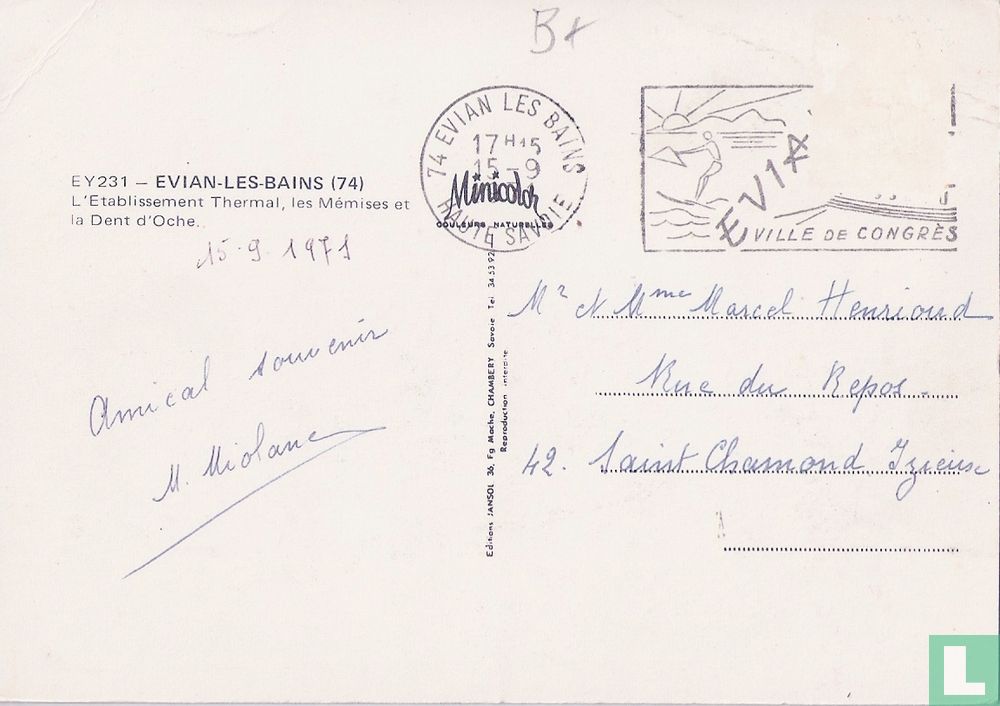 B+
74 EVIAN LES BAINS
17H15
15-9
HAUTE SAVOIE
Minicolor
COULEURS NATURELLES
EVIA
VILLE DE CONGRÈS
EY231 – EVIAN-LES-BAINS (74)
L'Etablissement Thermal, les Mémises et
la Dent d'Oche.
15.9.1971
Amical souvenir
M. Miolane
Editions JANSOL 36, Fg Mache, CHAMBERY Savoie Tel 34 53 92
Reproduction interdite
Mr et Mme Marcel Henrioud
Rue du Repos.
42. Saint Chamond Izieux
L